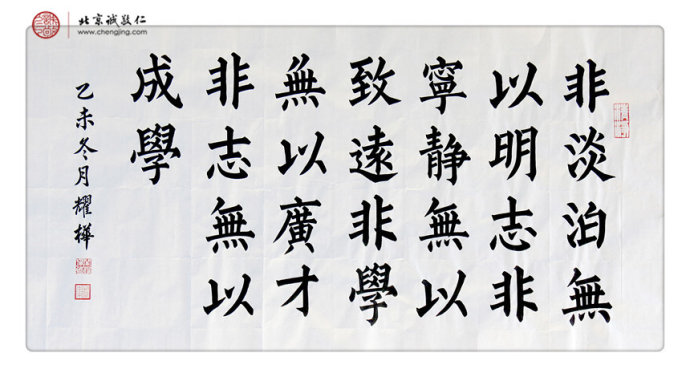 北京诚敬仁
www.chengjing.com
非淡泊無
以明志非
寧静無以
致遠非學
無以廣才
非志無以
成學
乙未冬月耀樺